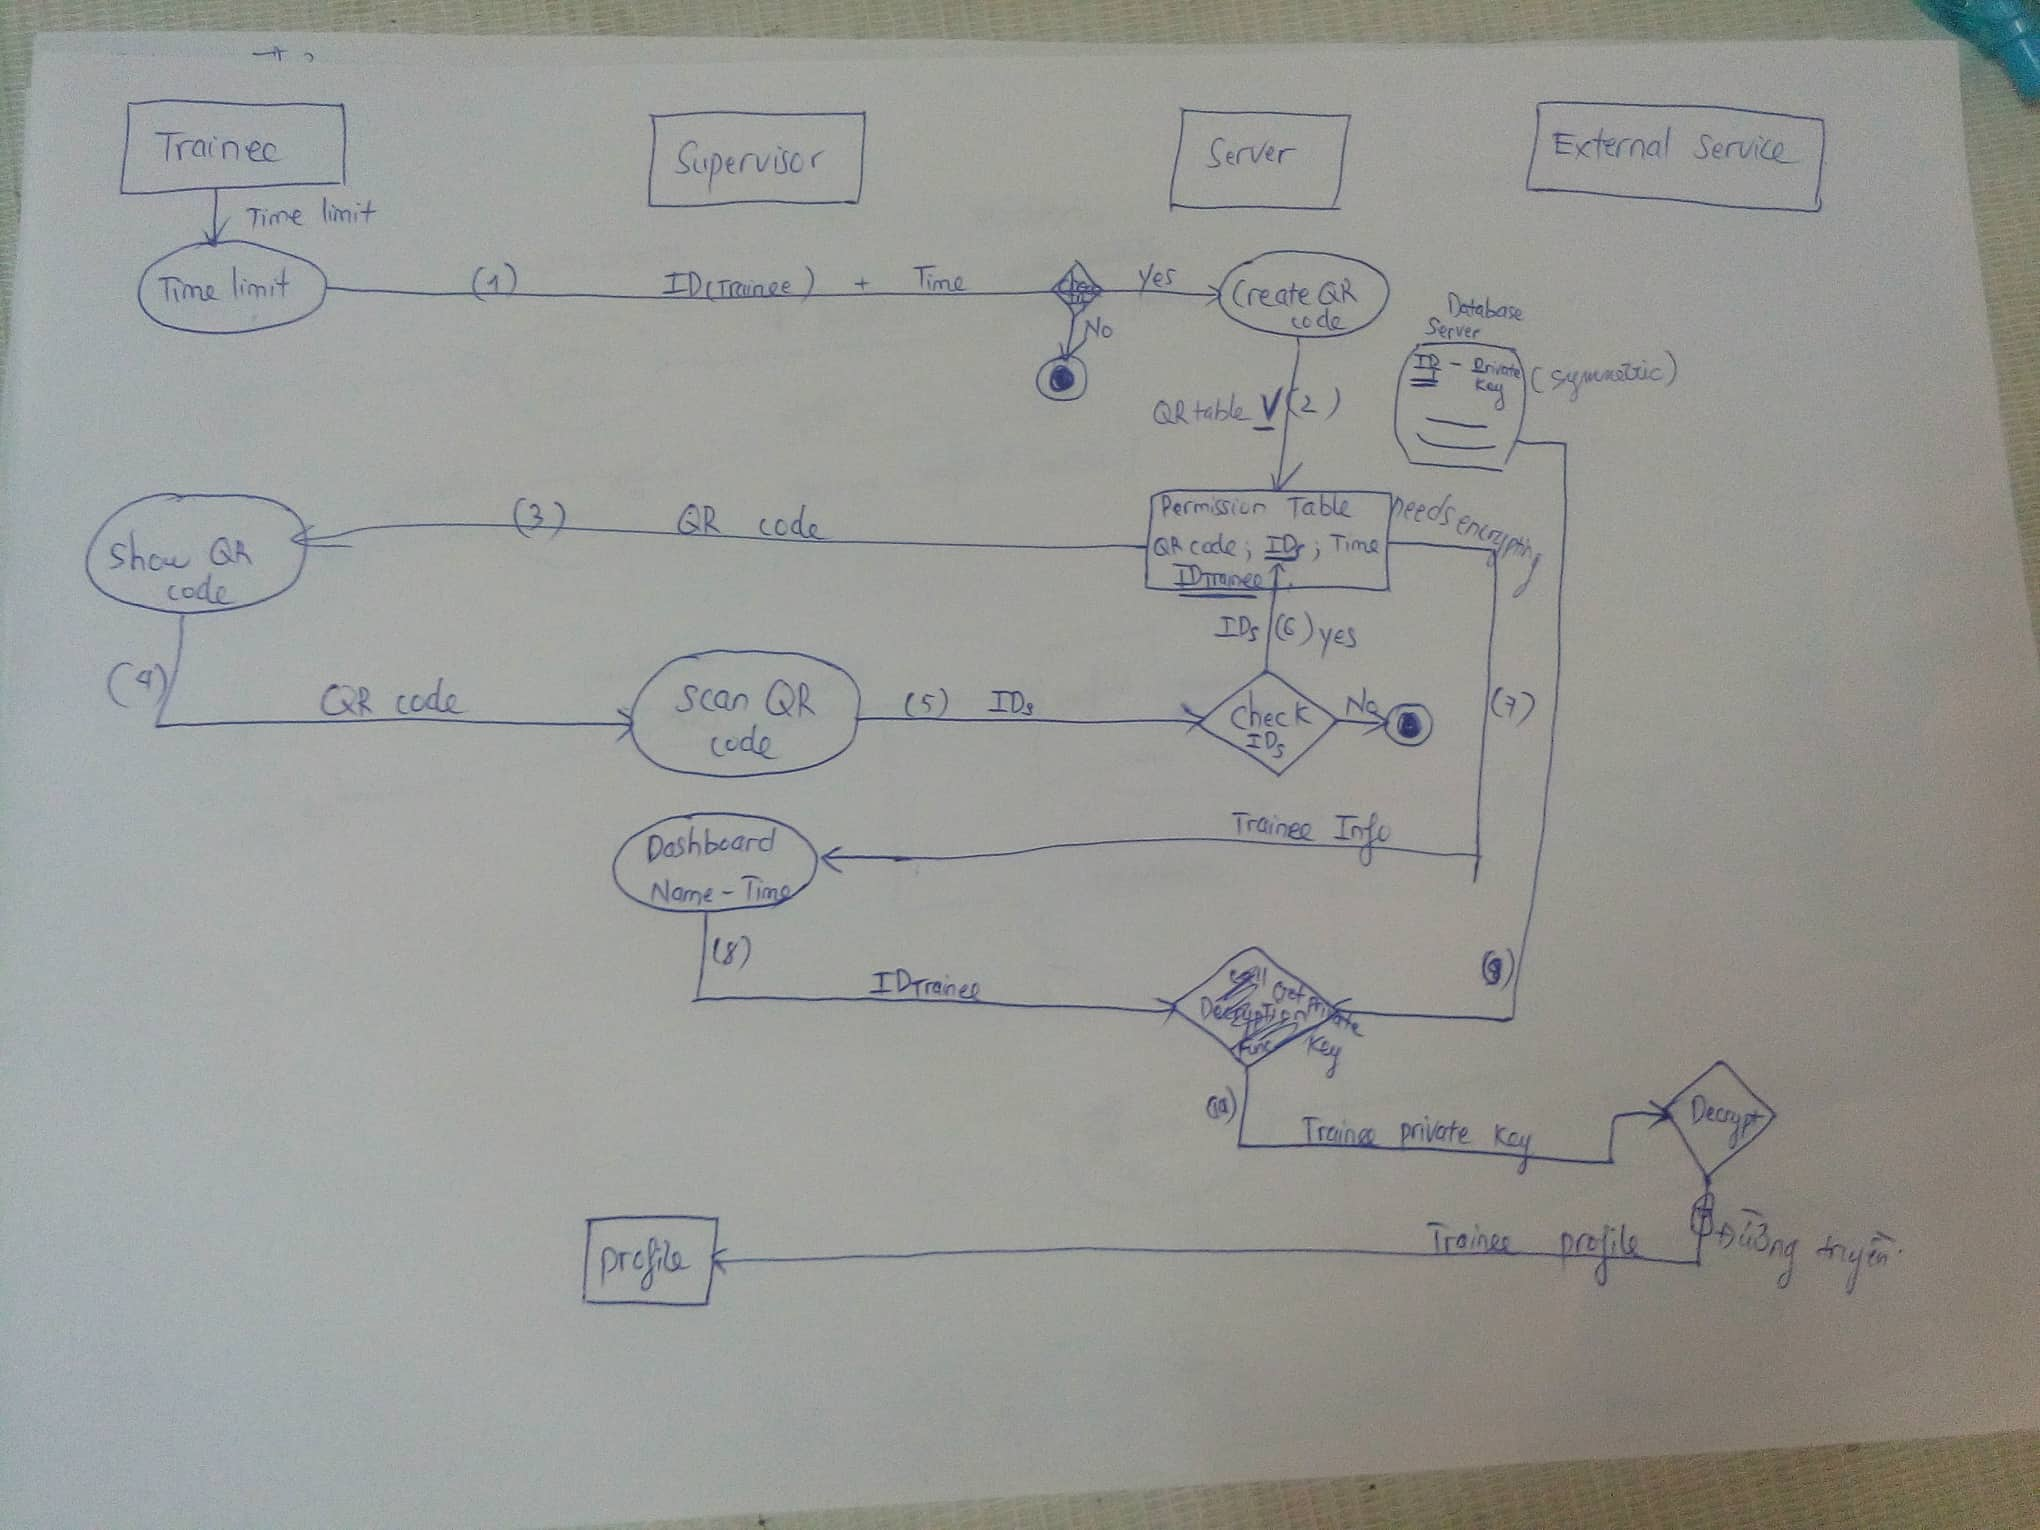 Trainee
Supervisor
Server
External Service
Time limit
Time limit
(1)
ID(Trainee) + Time
Yes
No
Create QR
code
Database
Server
ID - Private
Key
(symmetric)
QR table V (2)
Permission Table
QR code; IDs; Time
IDTrainee
needs encrypting
(3)
QR code
Show QR
code
IDs (6) yes
(4)
QR code
Scan QR
code
(5) IDs
Check
IDs
No
(7)
Trainee Info
Dashboard
Name - Time
(8)
IDTrainee
Decryption
Func
Get Private
Key
(9)
(10)
Trainee private key
Decrypt
Trainee profile
Đường truyền
profile